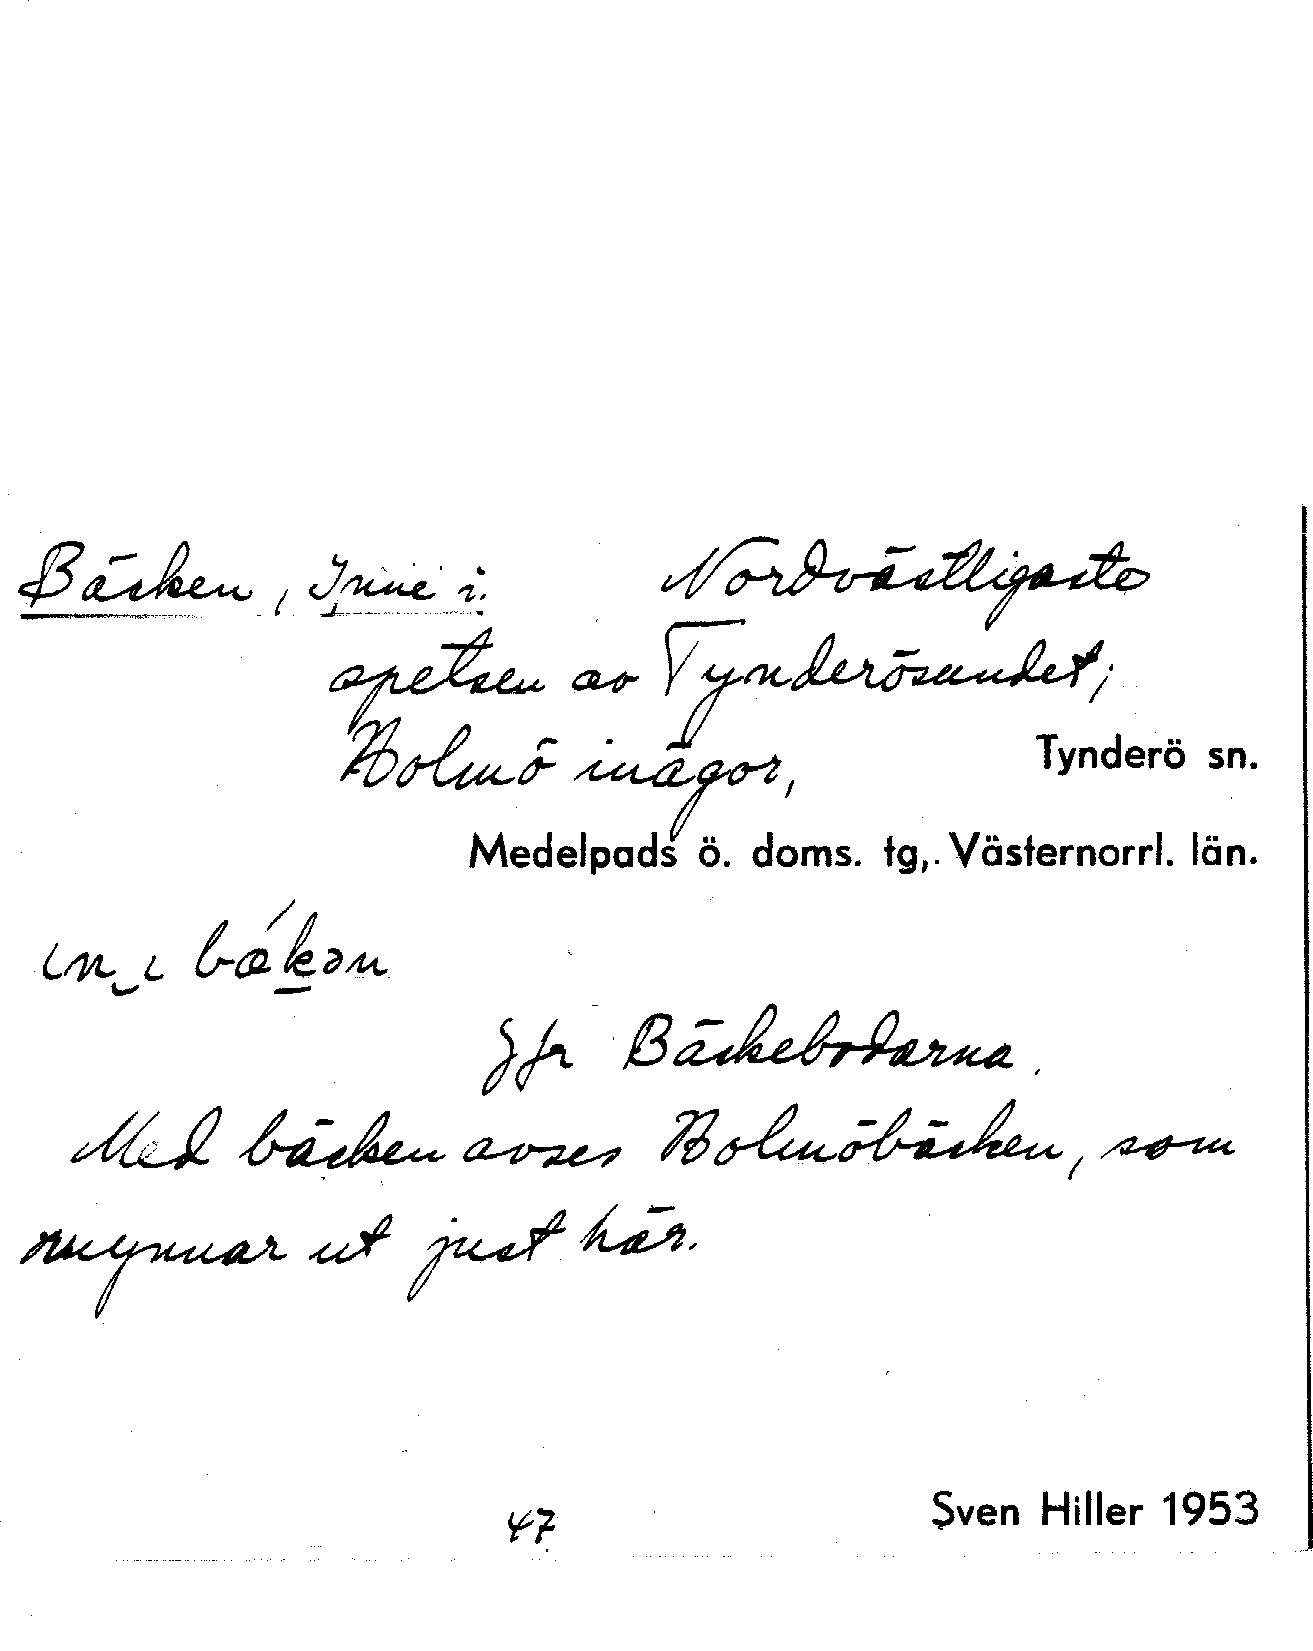 Bäcken, Inne i. Nordvästligaste
spetsen av Tynderösundet;
Holmö inägor, Tynderö sn.
Medelpads ö. doms. tg,. Västernorrl. län.
ın‿ı bǽk̲ən
Jfr Bäckebodarna.
Med bäcken avses Holmöbäcken, som
mynnar ut just här.
47 Sven Hiller 1953